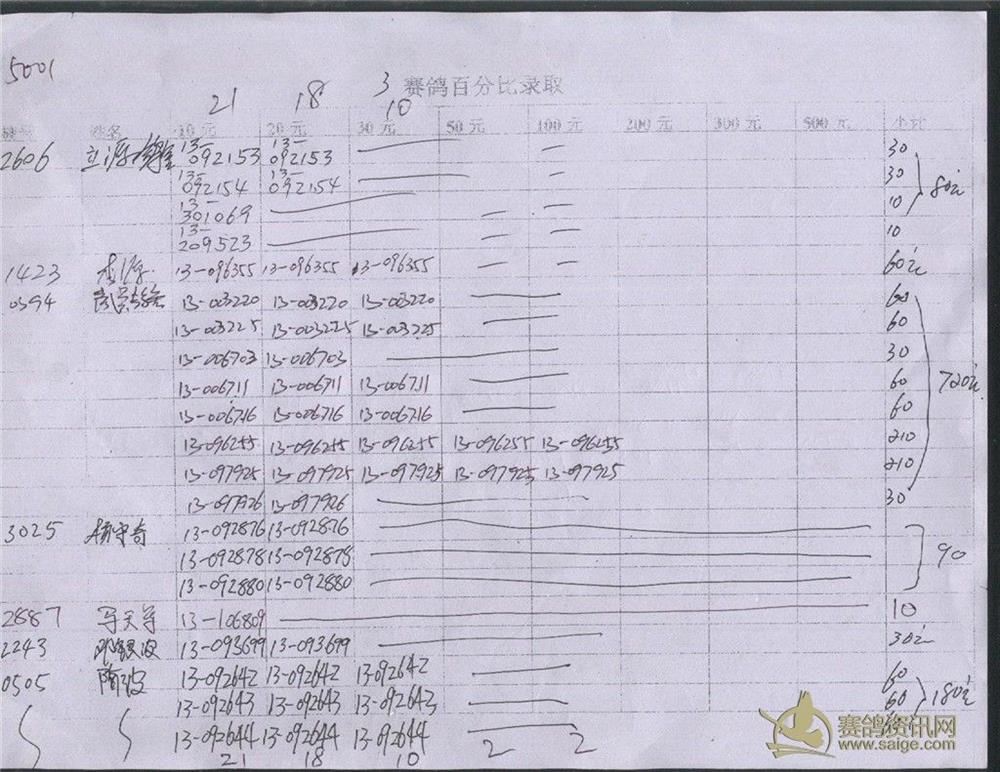 5001
赛鸽百分比录取
21 18 3 10
棚号 姓名 10元 20元 30元 50元 100元 200元 300元 500元 小计
2606 立源 13-092153 13-092153 30
13-092154 13-092154 30 80元
13-301069 10
13-209523 10
1423 13-096355 13-096355 13-096355 60元
0394 13-003220 13-003220 13-003220 60
13-003225 13-003225 13-003225 60
13-006703 13-006703 30
13-006711 13-006711 13-006711 60 720元
13-006716 13-006716 13-006716 60
13-096255 13-096255 13-096255 13-096255 13-096255 210
13-097925 13-097925 13-097925 13-097925 13-097925 210
13-097926 13-097926 30
3025 杨守奇 13-092876 13-092876
13-092878 13-092878 90
13-092880 13-092880
2887 马天宇 13-106809 10
2243 邓银波 13-093699 13-093699 30元
0505 陈波 13-092642 13-092642 13-092642 60
13-092643 13-092643 13-092643 60 180元
13-092644 13-092644 13-092644
21 18 10 2 2
赛鸽资讯网
www.saige.com